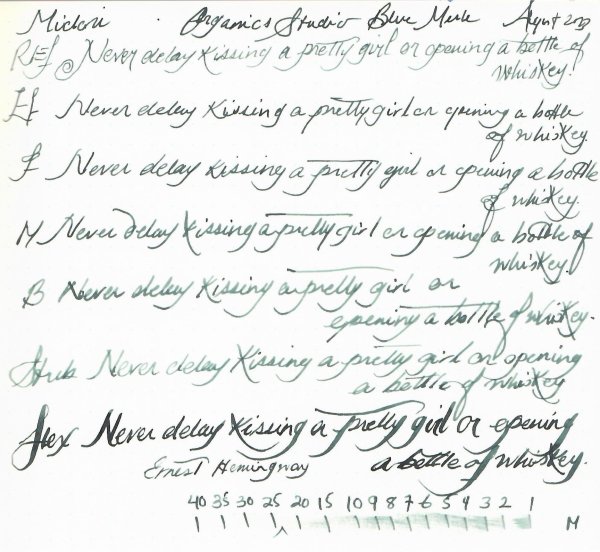 Midori Organics Studio Blue Merle August 2023
REF Never delay kissing a pretty girl or opening a bottle of
whiskey!
EF Never delay kissing a pretty girl or opening a bottle
of whiskey.
F Never delay kissing a pretty girl or opening a bottle
of whiskey.
M Never delay kissing a pretty girl or opening a bottle of
whiskey.
B Never delay kissing a pretty girl or
opening a bottle of whiskey.
Stub Never delay kissing a pretty girl or opening
a bottle of whiskey
flex Never delay kissing a pretty girl or opening
Ernest Hemingway a bottle of whiskey.
40 35 30 25 20 15 10 9 8 7 6 5 4 3 2 1
M